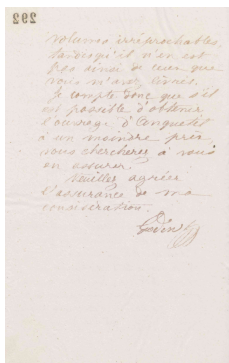 292
volumes irréprochables,
tandis qu'il n'en est
pas ainsi de ceux que
vous m'avez livrés.
Je compte donc que s'il
est possible d'obtenir
l'ouvrage d'Anquetil
à un moindre prix
vous chercherez à vous
en assurer.
Veuillez agréer
l'assurance de ma
considération.
Godin